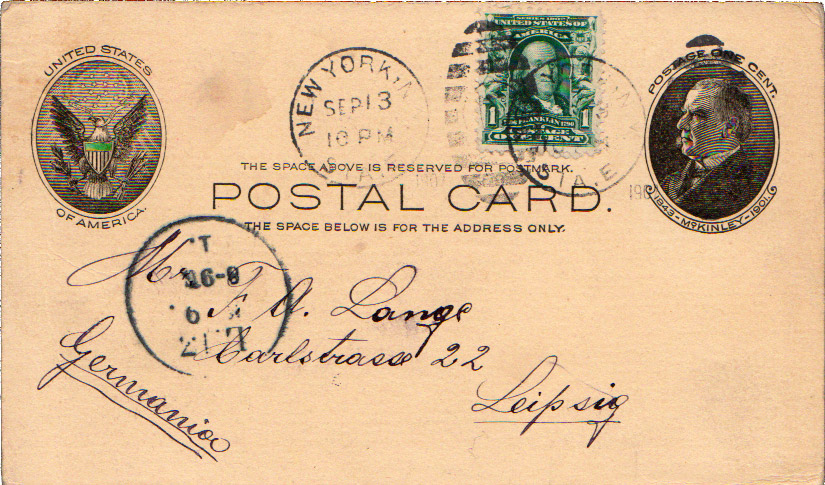 UNITED STATES
OF AMERICA.
NEW YORK, N.
SEP 13
10 PM
SERIES 1902
UNITED STATES OF
AMERICA
1
1
FRANKLIN 1790
POSTAGE
ONE CENT
POSTAGE ONE CENT.
1843-McKINLEY-1901.
THE SPACE ABOVE IS RESERVED FOR POSTMARK.
POSTAL CARD.
THE SPACE BELOW IS FOR THE ADDRESS ONLY.
Mr
F. A. Lange
Carlstrasse 22
Leipsig
Germania